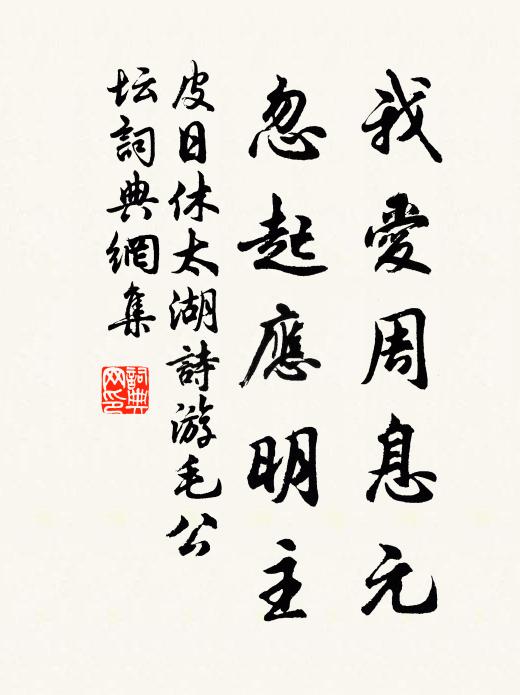 我愛周息元
忽起應明主
皮日休太湖詩游毛公
坛詞典網集
詞典
网印